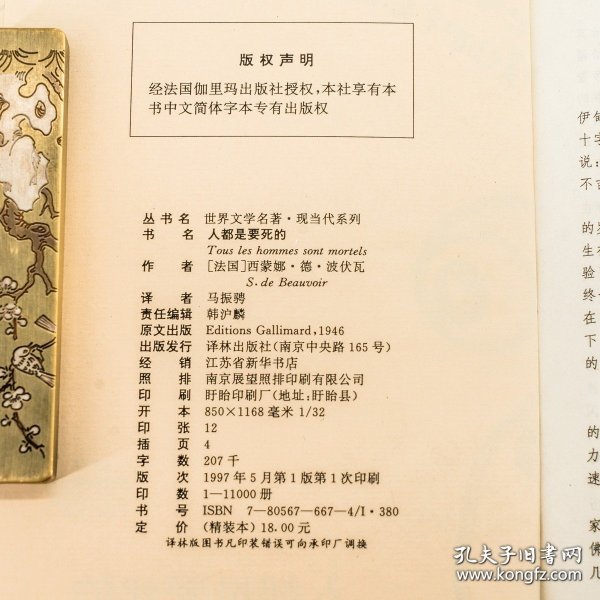 版权声明
经法国伽里玛出版社授权，本社享有本
书中文简体字本专有出版权
丛书名 世界文学名著·现当代系列
书 名 人都是要死的
Tous les hommes sont mortels
作 者 [法国]西蒙娜·德·波伏瓦
S. de Beauvoir
译 者 马振骋
责任编辑 韩沪麟
原文出版 Editions Gallimard,1946
出版发行 译林出版社(南京中央路 165号)
经 销 江苏省新华书店
照 排 南京展望照排印刷有限公司
印 刷 盱眙印刷厂(地址:盱眙县)
开 本 850×1168 毫米 1/32
印 张 12
插 页 4
字 数 207 千
版 次 1997 年 5 月第 1 版第 1 次印刷
印 数 1—11000 册
书 号 ISBN 7—80567—667—4/I·380
定 价 (精装本) 18.00 元
译林版图书凡印装错误可向承印厂调换
伊
十字
说:
不
的
生
验
终
在
下
的
的
力
速
家
佛
几
孔夫子旧书网
www.kongfz.com